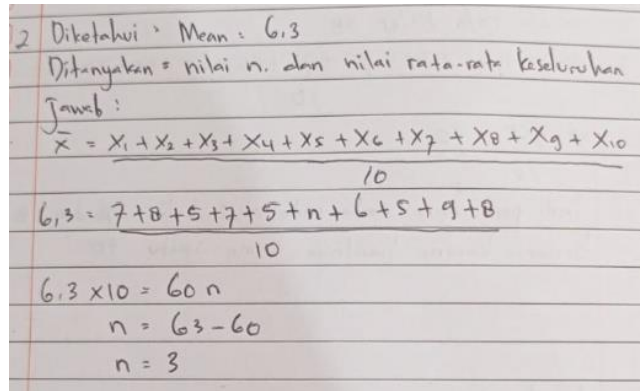 2 Diketahui : Mean : 6,3
Ditanyakan = nilai n. dan nilai rata-rata keseluruhan
Jawab :
x̄ = X₁ + X₂ + X₃ + X₄ + X₅ + X₆ + X₇ + X₈ + X₉ + X₁₀
10
6,3 = 7+8+5+7+5+n+6+5+9+8
10
6,3 x10 = 60 n
n = 63-60
n = 3